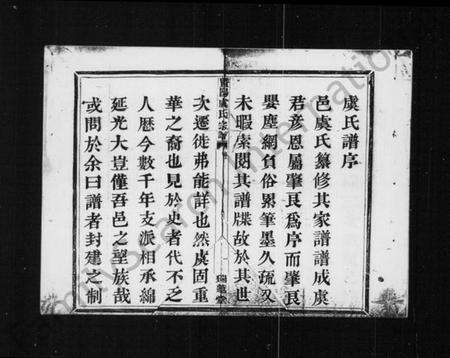 虞氏譜序
邑虞氏纂修其家譜譜成虞
君彦恩屬肇艮爲序而肇艮
嬰塵網負俗累筆墨久疏又
未暇索閱其譜牒故於其世
次遷徙弗能詳也然虞固重
華之裔也見於史者代不乏
人歷今數千年支派相承綿
延光大豈僅吾邑之望族哉
或問於余曰譜者封建之制